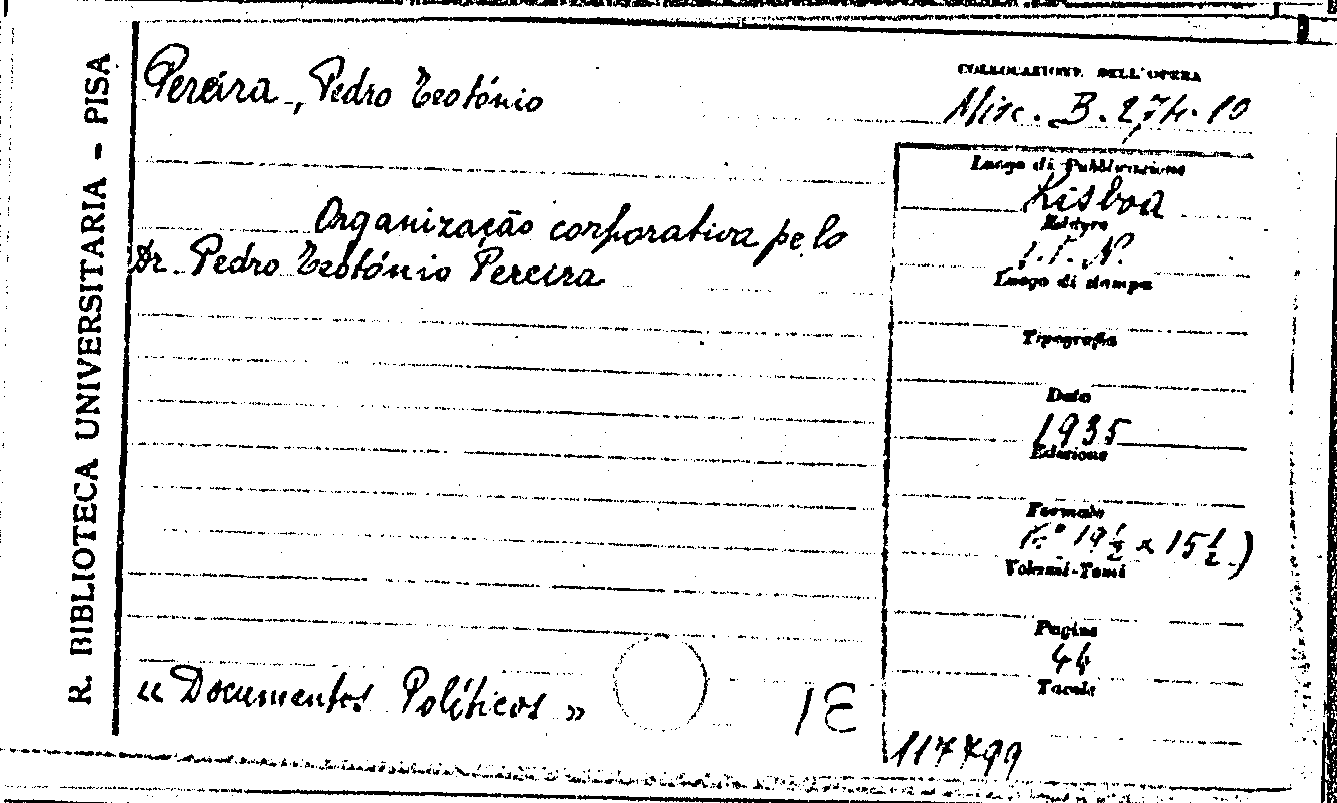 R. BIBLIOTECA UNIVERSITARIA - PISA
Pereira, Pedro Teotónio
COLLOCAZIONE DELL'OPERA
Misc. B. 274. 10
Organização corporativa pelo
Dr. Pedro Teotónio Pereira
Luogo di Pubblicazione
Lisboa
Editore
S.P.N.
Luogo di stampa
Tipografia
Data
1935
Edizione
Formato
19 1/2 x 15 1/2)
Volumi-Tomi
Pagine
44
Tavole
117799
« Documentos Políticos »
1E